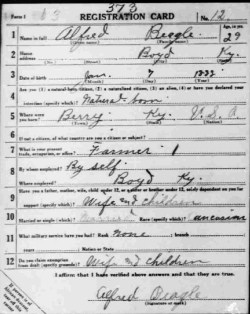 Form 1
313
REGISTRATION CARD
No. 12
1 Name in full Alfred Beagle Age, in yrs. 29
2 Home address Boyd Ky.
3 Date of birth Jan. 7
4 Are you (1) a natural-born citizen, (2) a naturalized citizen, (3) an alien, (4) or have you declared your intention (specify which)? Natural born
5 Where were you born? Berry Ky. U.S.A.
6 If not a citizen, of what country are you a citizen or subject?
7 What is your present trade, occupation, or office? Farmer 1
8 By whom employed? By self
Where employed? Boyd Ky.
9 Have you a father, mother, wife, child under 12, or a sister or brother under 12, solely dependent on you for support (specify which)? Wife and children
10 Married or single (which)? Married Race (specify which)? Caucasian
11 What military service have you had? Rank None branch
years Nation or State
12 Do you claim exemption from draft (specify grounds)? Wife and children
I affirm that I have verified above answers and that they are true.
Alfred Beagle
(Signature or mark)